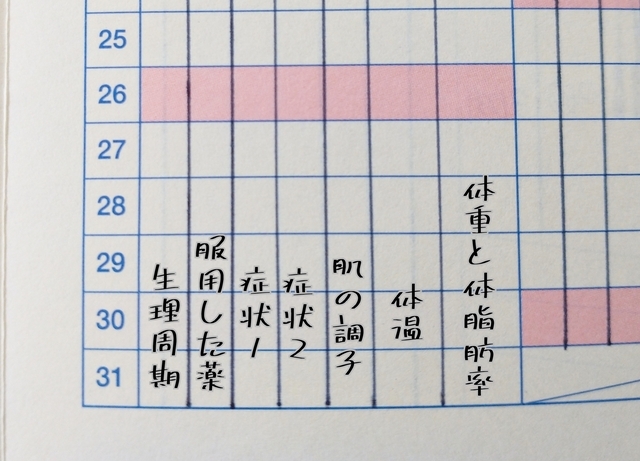 25
26
27
28
29
30
31
生理周期
服用した薬
症状1
症状2
肌の調子
体温
体重と体脂肪率